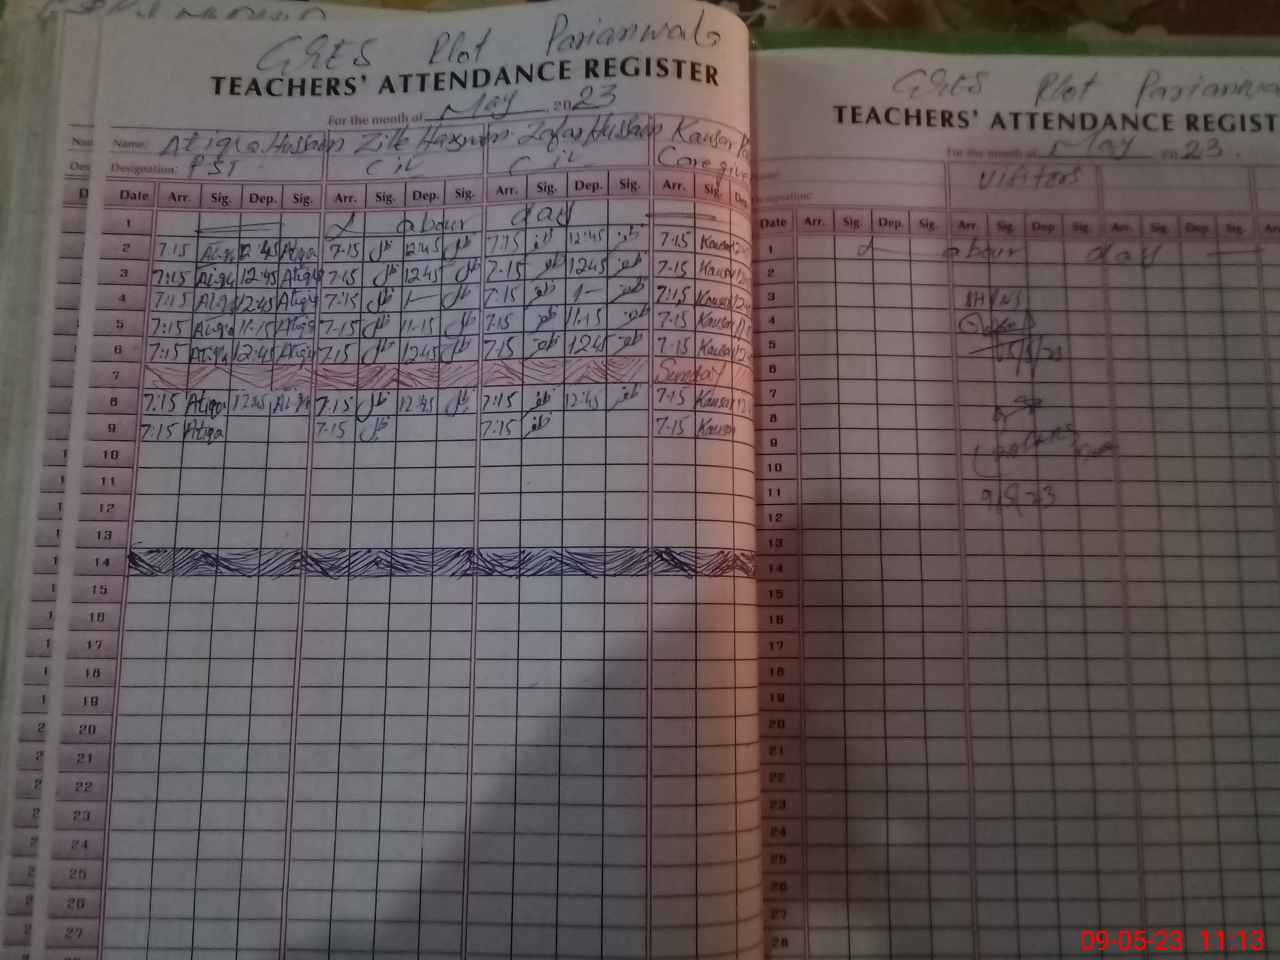 GGES Plot Parianwala
TEACHERS' ATTENDANCE REGISTER
For the month of May 2023
Name: Atiqa Hussain Zille Zafar Hussain Kausar
Designation: PST Care give
Date Arr. Sig. Dep. Sig. Arr. Sig. Dep. Sig. Arr. Sig. Dep. Sig. Arr. Sig. Dep.
1 Labour day
2 7:15 Atiqa 12:45 Atiqa 7-15 ظل 12:45 ظل 7:15 ظفر 12:45 ظفر 7-15 Kausar
3 7:15 Atiqa 12:45 Atiqa 7-15 ظل 1245 ظل 7-15 ظفر 1245 ظفر 7-15 Kausar
4 7:15 Atiqa 12:45 Atiqa 7:15 ظل 1- ظل 7:15 ظفر 1- ظفر 7:15 Kausar
5 7:15 Atiqa 11-15 Atiqa 7-15 ظل 11-15 ظل 7:15 ظفر 11-15 ظفر 7-15 Kausar
6 7:15 Atiqa 12:45 Atiqa 7:15 ظل 1245 ظل 7-15 ظفر 1245 ظفر 7-15 Kausar
7 Sunday
8 7:15 Atiqa 12:45 Atiqa 7:15 ظل 12:45 ظل 7:15 ظفر 12:45 ظفر 7-15 Kausar
9 7:15 Atiqa 7-15 ظل 7:15 ظفر 7-15 Kausar
10
11
12
13
14
15
16
17
18
19
20
21
22
23
24
25
26
27
GGES Plot Parianwa
TEACHERS' ATTENDANCE REGIST
For the month of May 2023.
Visitors
Date Arr. Sig. Dep. Sig. Arr. Sig. Dep. Sig. Arr. Sig. Dep. Sig.
1 Labour day
2
3
4
5
6
7
8
9
10
11 9/5/23
12
13
14
15
16
17
18
19
20
21
22
23
24
25
26
27
28
09-05-23 11:13